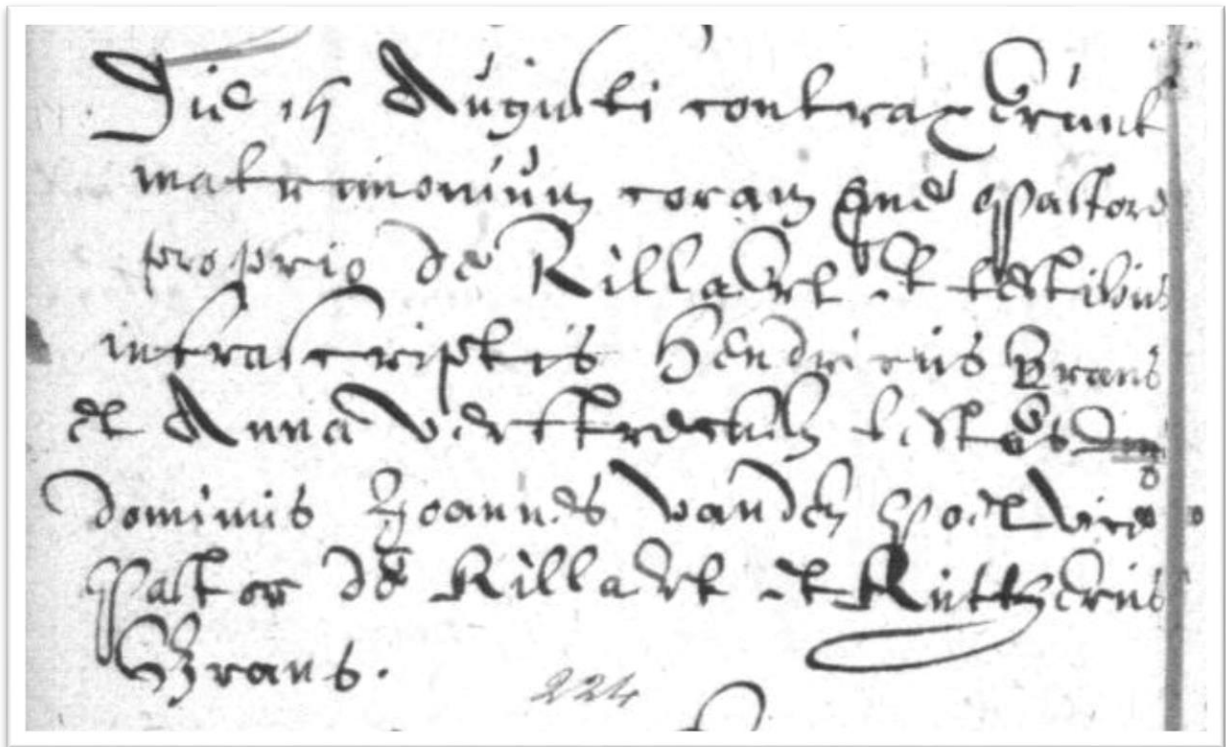 Die 15 Augusti contraxerunt
matrimonium coram me Pastore
proprio de Rillaert et testibus
infrascriptis Hendricus Brans
et Anna Testes
dominus Joannes vanden Poel vice
Pastor de Rillaert et Ruttgerus
Brans.
224